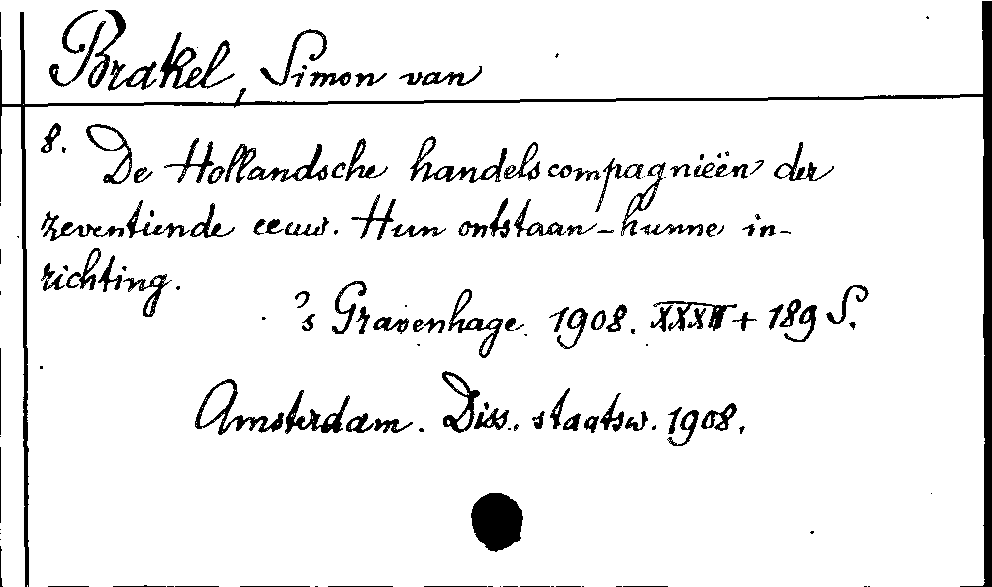 Brakel, Simon van
8. De Hollandsche handelscompagnieën der
zeventiende eeuw. Hun ontstaan – hunne in-
richting.
's Gravenhage 1908. + 189 S.
Amsterdam. Diss. staatsw. 1908.